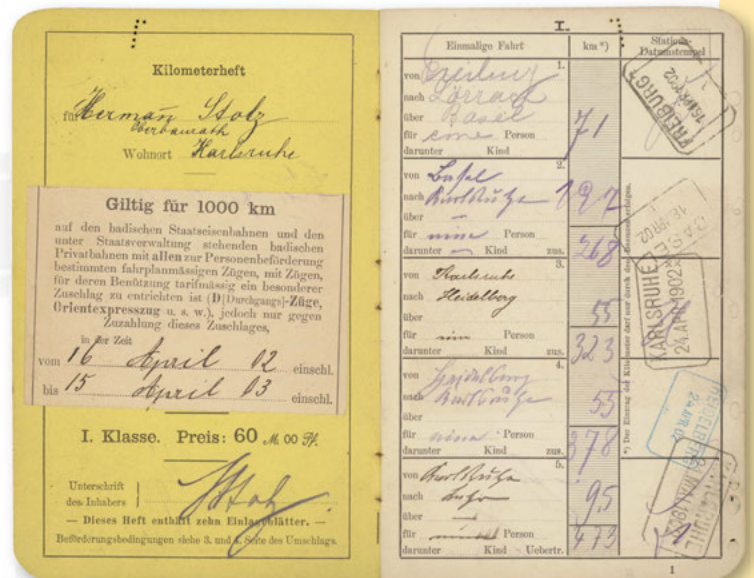 Kilometerheft
für Herman Stolz
Oberbaurath
Wohnort Karlsruhe
Giltig für 1000 km
auf den badischen Staatseisenbahnen und den
unter Staatsverwaltung stehenden badischen
Privatbahnen mit allen zur Personenbeförderung
bestimmten fahrplanmässigen Zügen, mit Zügen,
für deren Benützung tarifmässig ein besonderer
Zuschlag zu entrichten ist (D[Durchgangs]-Züge,
Orientexpresszug u. s. w.), jedoch nur gegen
Zuzahlung dieses Zuschlags,
in der Zeit
vom 16 April 02 einschl.
bis 15 April 03 einschl.
I. Klasse. Preis: 60 M. 00 Pf.
Unterschrift
des Inhabers
Stolz
— Dieses Heft enthält zehn Einlageblätter. —
Beförderungsbedingungen siehe 3. und 4. Seite des Umschlags.
I.
Einmalige Fahrt km *) Stations-Datumstempel
1.
von
nach Lörrach
über Basel
für eine Person 71
darunter Kind
FREIBURG
2.
von Basel
nach Karlsruhe 197
über —
für eine Person
darunter — Kind zus. 268
3.
von Karlsruhe
nach Heidelberg
über 55
für eine Person
darunter Kind zus. 323
KARLSRUHE
24.APR1902
4.
von Heidelberg
nach Karlsruhe
über 55
für eine Person
darunter Kind zus. 378
HEIDELBERG
24 APR 02
5.
von Karlsruhe
nach
über — 95
für Person
darunter Kind Uebertr. 473
KARLSRUHE
*) Der Eintrag der Kilometer darf nur durch den
1